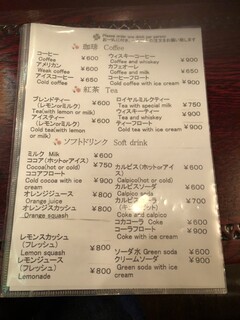 Please order one drink per person
珈琲 Coffee
コーヒー ¥600
Coffee
アメリカン ¥600
Weak coffee
アイスコーヒー ¥650
Cold coffee
ウィスキーコーヒー ¥900
Coffee and whiskey
カフェオーレ ¥650
Coffee and milk
コーヒーフロート ¥900
Cold coffee with ice cream
紅茶 Tea
ブレンドティー ¥600
(レモンorミルク)
Tea(with lemon or milk)
アイスティー ¥650
(レモンorミルク)
Cold tea(with lemon or milk)
ロイヤルミルクティー ¥750
Tea with special milk
ウィスキーティー ¥900
Tea and whiskey
ティーフロート ¥900
Cold tea with ice cream
ソフトドリンク Soft drink
ミルク Milk ¥600
ココア(ホットorアイス) ¥750
Cocoa(hot or cold)
ココアフロート ¥900
Cold cocoa with ice cream
オレンジジュース ¥800
Orange juice
オレンジスカッシュ ¥800
Orange squash
レモンスカッシュ ¥800
(フレッシュ)
Lemon squash
レモンジュース ¥800
(フレッシュ)
Lemonade
カルピス(ホットorアイス)
Calpico(hot or cold)
カルピスソーダ
Calpico soda
Coke and calpico
コカコーラ Coke
コーラフロート ¥900
Coke with ice cream
ソーダ水 Green soda ¥600
クリームソーダ ¥900
Green soda with ice cream